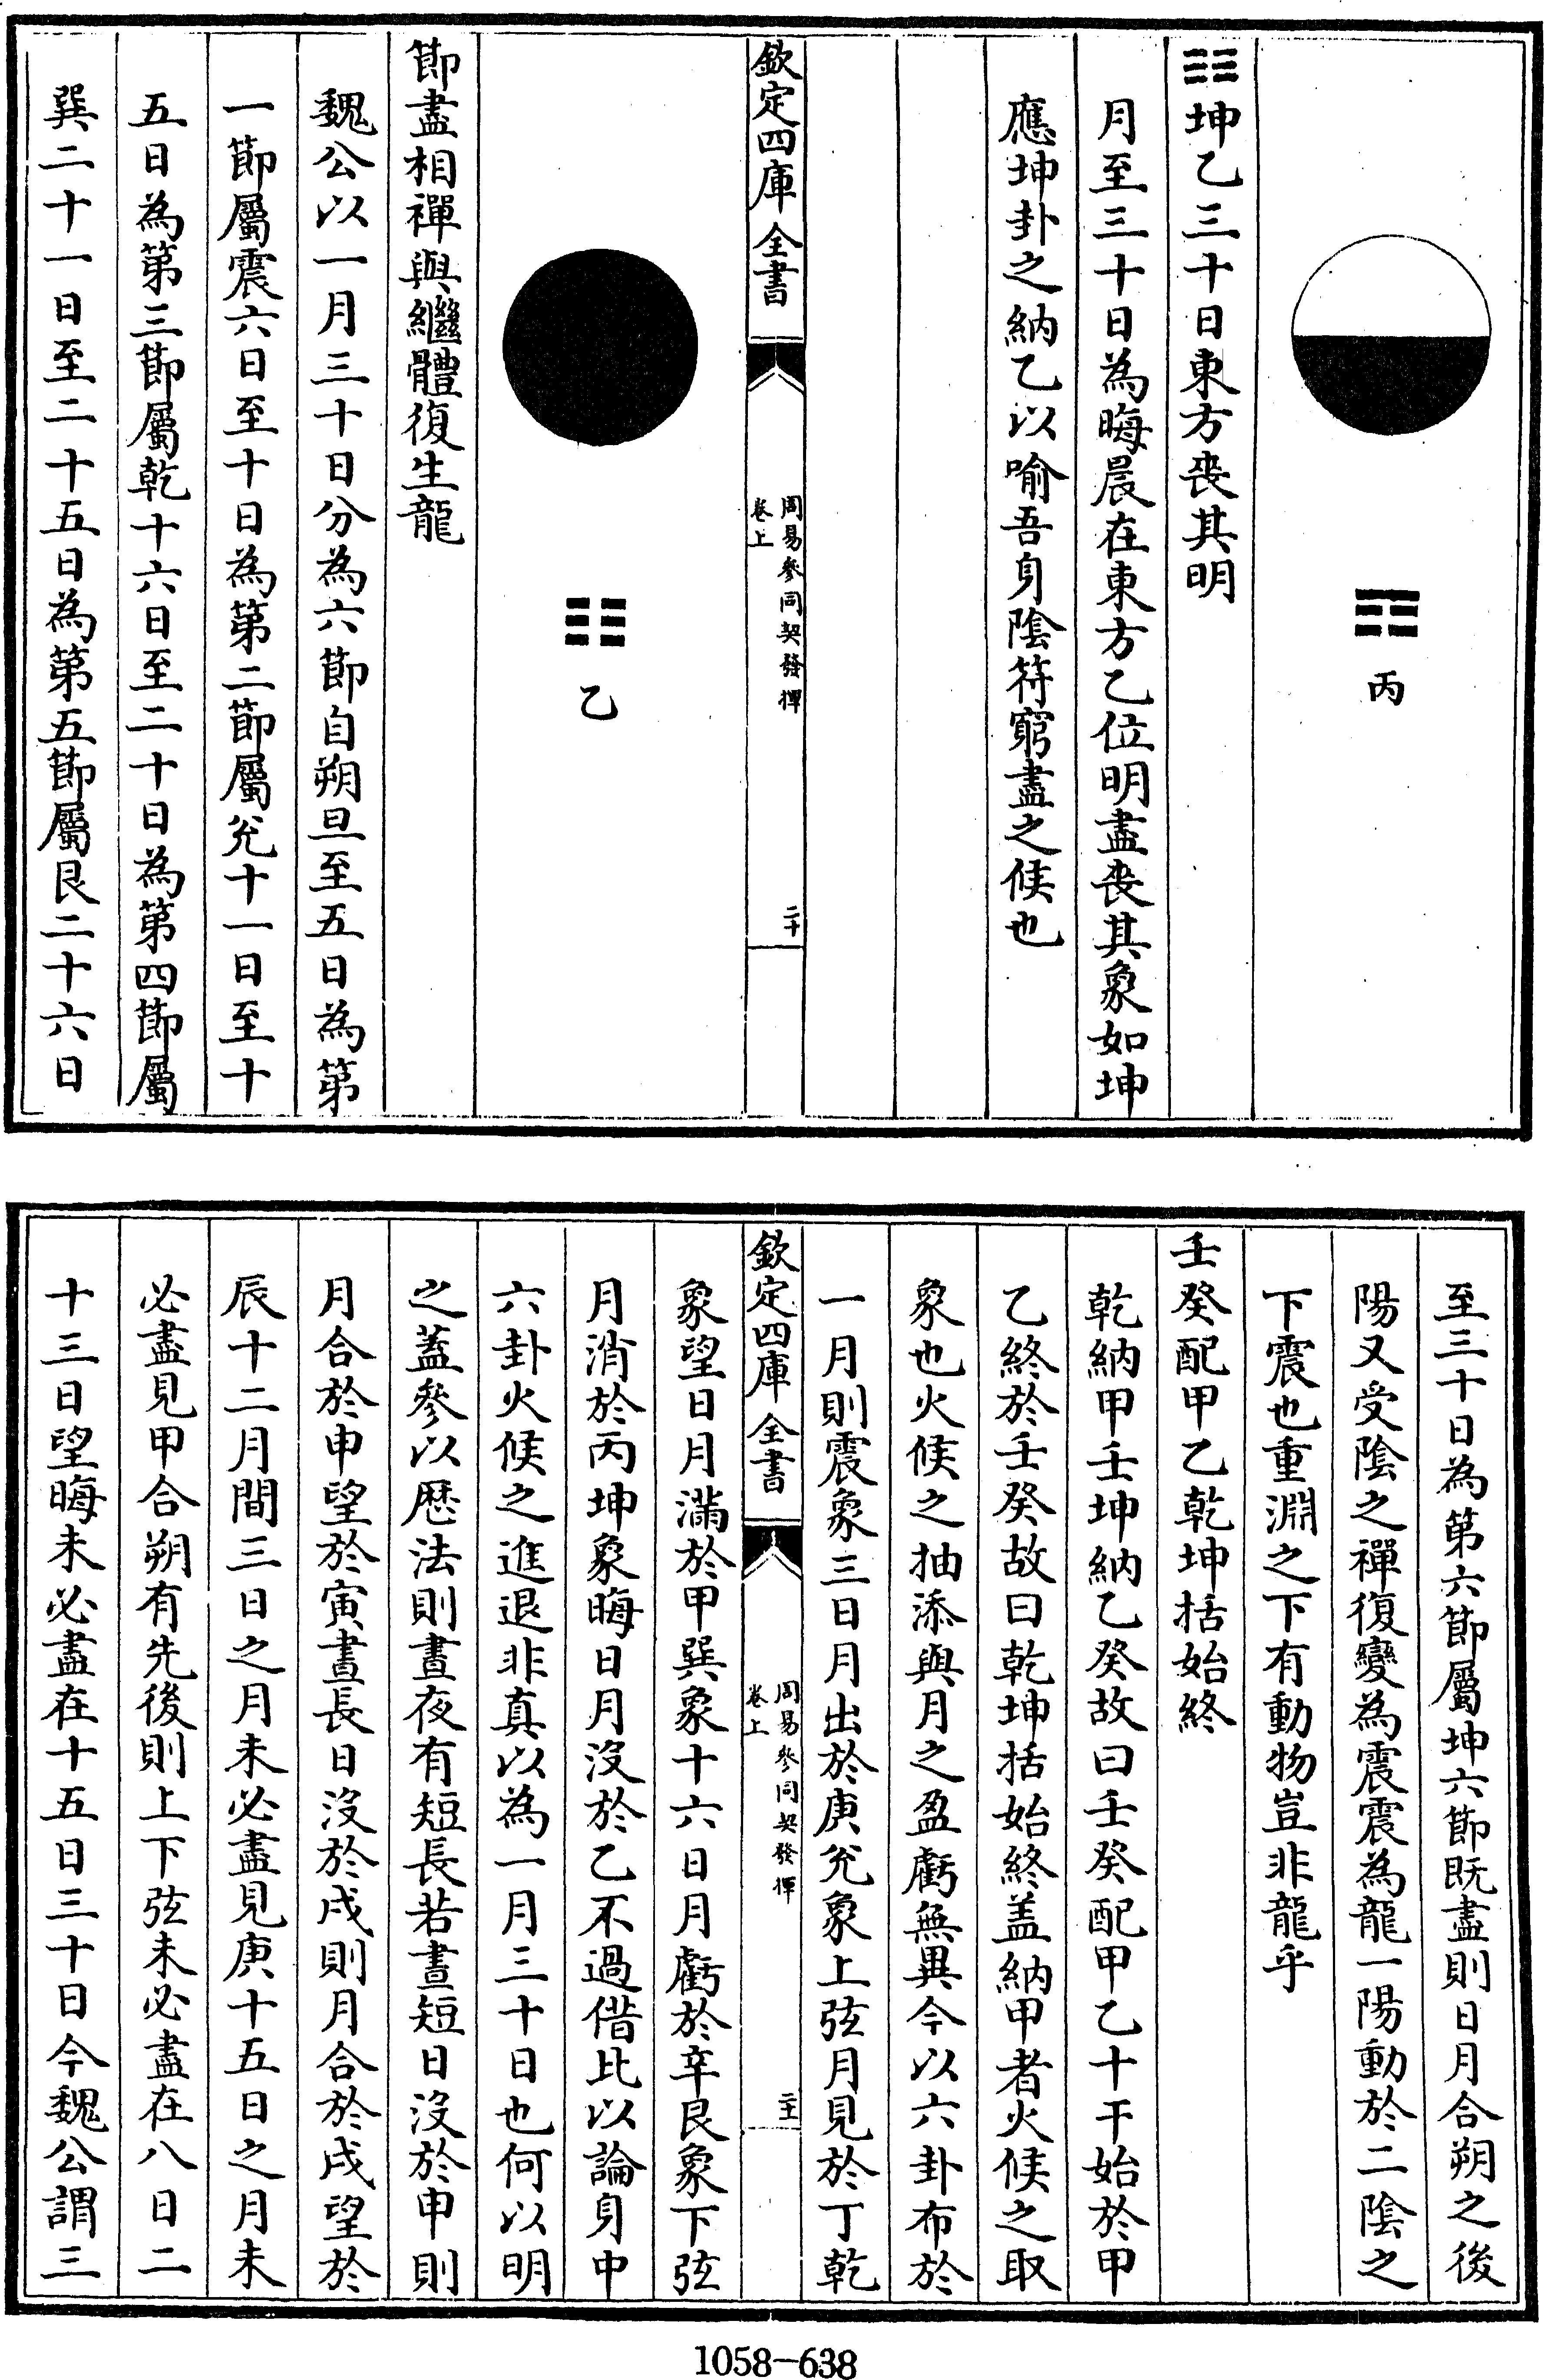 ☶ 丙
☷坤乙三十日東方喪其明
月至三十日為晦晨在東方乙位明盡喪其象如坤
應坤卦之納乙以喻吾身陰符窮盡之候也
欽定四庫全書
周易參同契發揮
卷上
二十
☷ 乙
節盡相禪與繼體復生龍
魏公以一月三十日分為六節自朔旦至五日為第
一節屬震六日至十日為第二節屬兌十一日至十
五日為第三節屬乾十六日至二十日為第四節屬
巽二十一日至二十五日為第五節屬艮二十六日
至三十日為第六節屬坤六節既盡則日月合朔之後
陽又受陰之禪復變為震震為龍一陽動於二陰之
下震也重淵之下有動物豈非龍乎
壬癸配甲乙乾坤括始終
乾納甲壬坤納乙癸故曰壬癸配甲乙十干始於甲
乙終於壬癸故曰乾坤括始終盖納甲者火候之取
象也火候之抽添與月之盈虧無異今以六卦布於
一月則震象三日月出於庚兌象上弦月見於丁乾
欽定四庫全書
周易參同契發揮
卷上
二十一
象望日月滿於甲巽象十六日月虧於辛艮象下弦
月消於丙坤象晦日月沒於乙不過借此以論身中
六卦火候之進退非真以為一月三十日也何以明
之蓋參以歷法則晝夜有短長若晝短日沒於申則
月合於申望於寅晝長日沒於戌則月合於戌望於
辰十二月間三日之月未必盡見庚十五日之月未
必盡見甲合朔有先後則上下弦未必盡在八日二
十三日望晦未必盡在十五日三十日今魏公謂三
1058-638